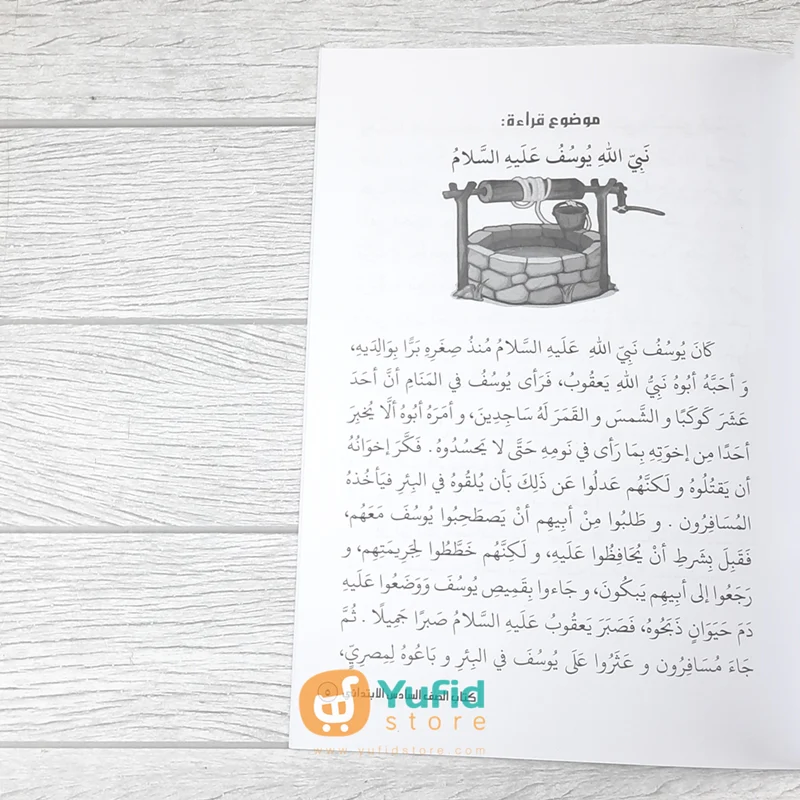 موضوع قراءة:
نَبِيّ اللهِ يُوسُفُ عَلَيهِ السَّلامُ
كَانَ يُوسُفُ نَبِيَ اللهِ عَلَيهِ السَّلامُ مُنذُ صِغَرِهِ بَرًّا بِوَالِدَيهِ،
وَ أحَبَّهُ أبُوهُ نَبِيُّ اللهِ يَعقُوبُ، فَرَأى يُوسُفُ في المَنَامِ أنَّ أحَدَ
عَشَرَ كَوكَبًا و الشَّمسَ و القَمَرَ لَهُ سَاجِدِينَ، و أمَرَهُ أبُوهُ ألَّا يُخبِرَ
أحَدًا مِن إخوَتِهِ بِمَا رَأى في نَومِهِ حَتَّى لا يَحسُدُوهُ . فَكَّرَ إخوَانُهُ
أن يَقتُلُوهُ و لَكنَّهُم عَدلُوا عَن ذَلِكَ بَأن يُلقُوهُ في البِئرِ فَيَأخُذهُ
المُسَافِرُون . و طَلبُوا مِنْ أبِيهِم أنْ يَصطَحِبُوا يُوسُفَ مَعَهُم،
فَقَبِلَ بِشَرطِ أنْ يُحَافِظُوا عَلَيهِ، و لَكِنَّهُم خَطَّطُوا لِجَرِيمَتِهِم، و
رَجَعُوا إلى أبِيهِم يَبكُونَ، و جَاءوا بِقَمِيصِ يُوسُفَ وَوَضَعُوا عَلَيهِ
دَمَ حَيَوَانٍ ذَبَحُوهُ، فَصَبَرَ يَعقُوبُ عَلَيهِ السَّلامُ صَبرًا جَمِيلًا . ثُمَّ
جَاءَ مُسَافِرُون و عَثَرُوا عَلَى يُوسُفَ في البِئرِ و بَاعُوهُ لِمِصرِيٍّ،
كتاب الصف السادس الابتدائي
Yufid
store
www.yufidstore.com